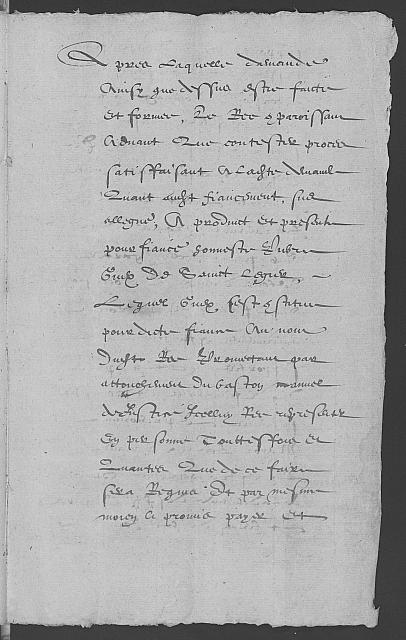 Apres Laquelle demande
Ainsy que dessus estre faicte
Et formee, Le Ree comparoissant
Advant Que contester proces
satisffaisant A lacte devant
Quant audit fiancement, sus
allegue, A produict Et presente
pour fiance honneste
Guex De Sainct Legier,
Lequel Guex, sest constitue
pour dicte fiance Au nom
Dudit Ree Promectant par
attouchement du baston
de Justice Icelluy Ree representer
En personne Touttesfois Et
Quantes Que de ce faire
sera Requis Et par mesme
moien A promis payer Et